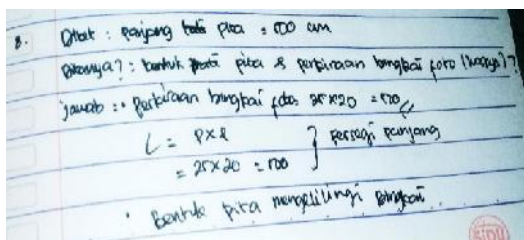 8. Dikat : panjang pita = 500 cm
Ditanya? : bentuk pita & perkiraan bingkai foto (luasnya)?
Jawab : • Perkiraan bingkai foto 25x20 = 500
L = p x l } persegi panjang
= 25x20 = 500
• Bentuk pita mengelilingi bingkai
SIDU